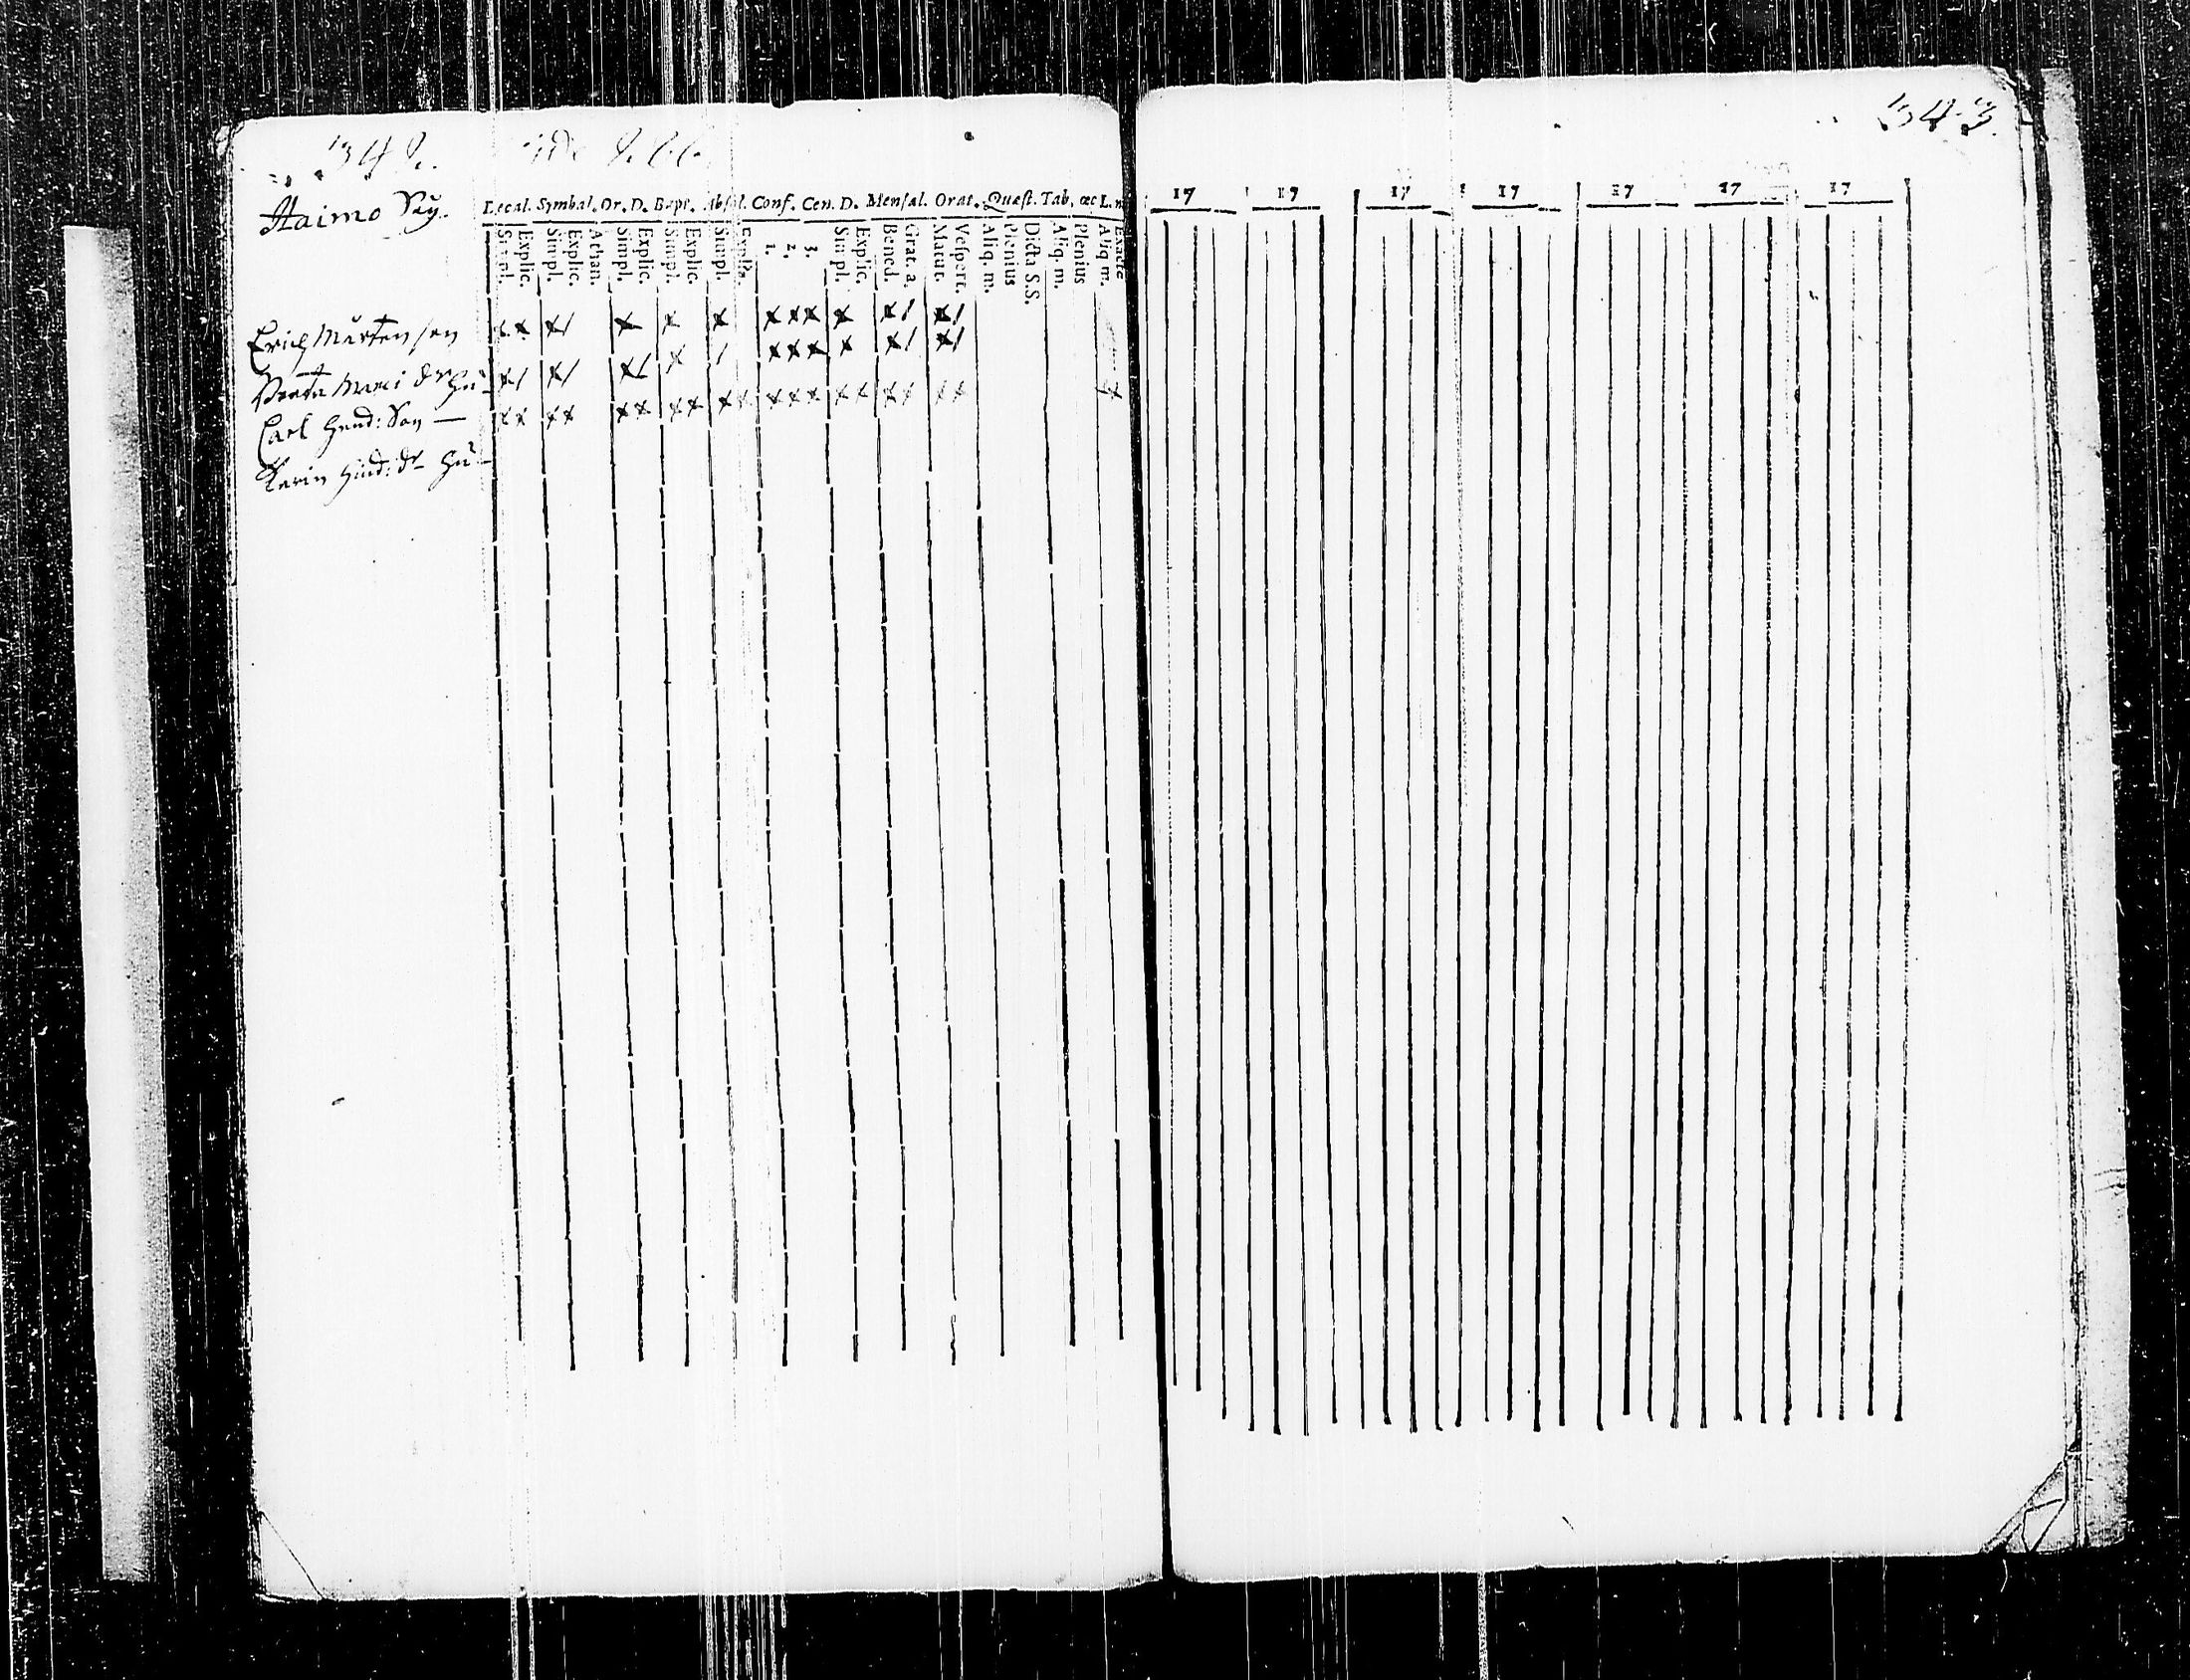 342.
343.
Haimo By.
Decal. Symbal. Or. D. Bapt. Absol. Conf. Cen. D. Mensal. Orat. Quæst. Tab. œc L. n
Simpl. Explic. Simpl. Explic. Athan. Simpl. Explic. Simpl. Explic. Simpl. Explic. 1. 2. 3. Simpl. Explic. Bened. Grat. a. Matut. Vespert. Aliq. m. Plenius Dicta S.S. Aliq. m. Plenius Aliq. m. Exacte
17 17 17 17 17 17 17
Erich Mårtensson
Marci dr hu
Carl Hend: Son
Karin Hind: dr hu